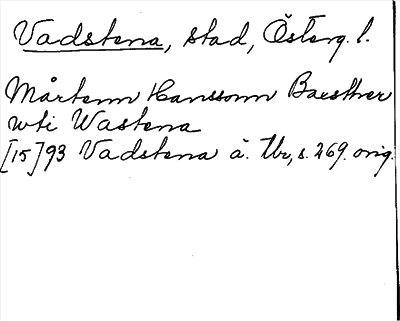 Vadstena, stad, Österg. l.
Mårtenn Hanssonn Barsther
wti Wastena
[15]93 Vadstena ä. tbr, s. 269. orig.